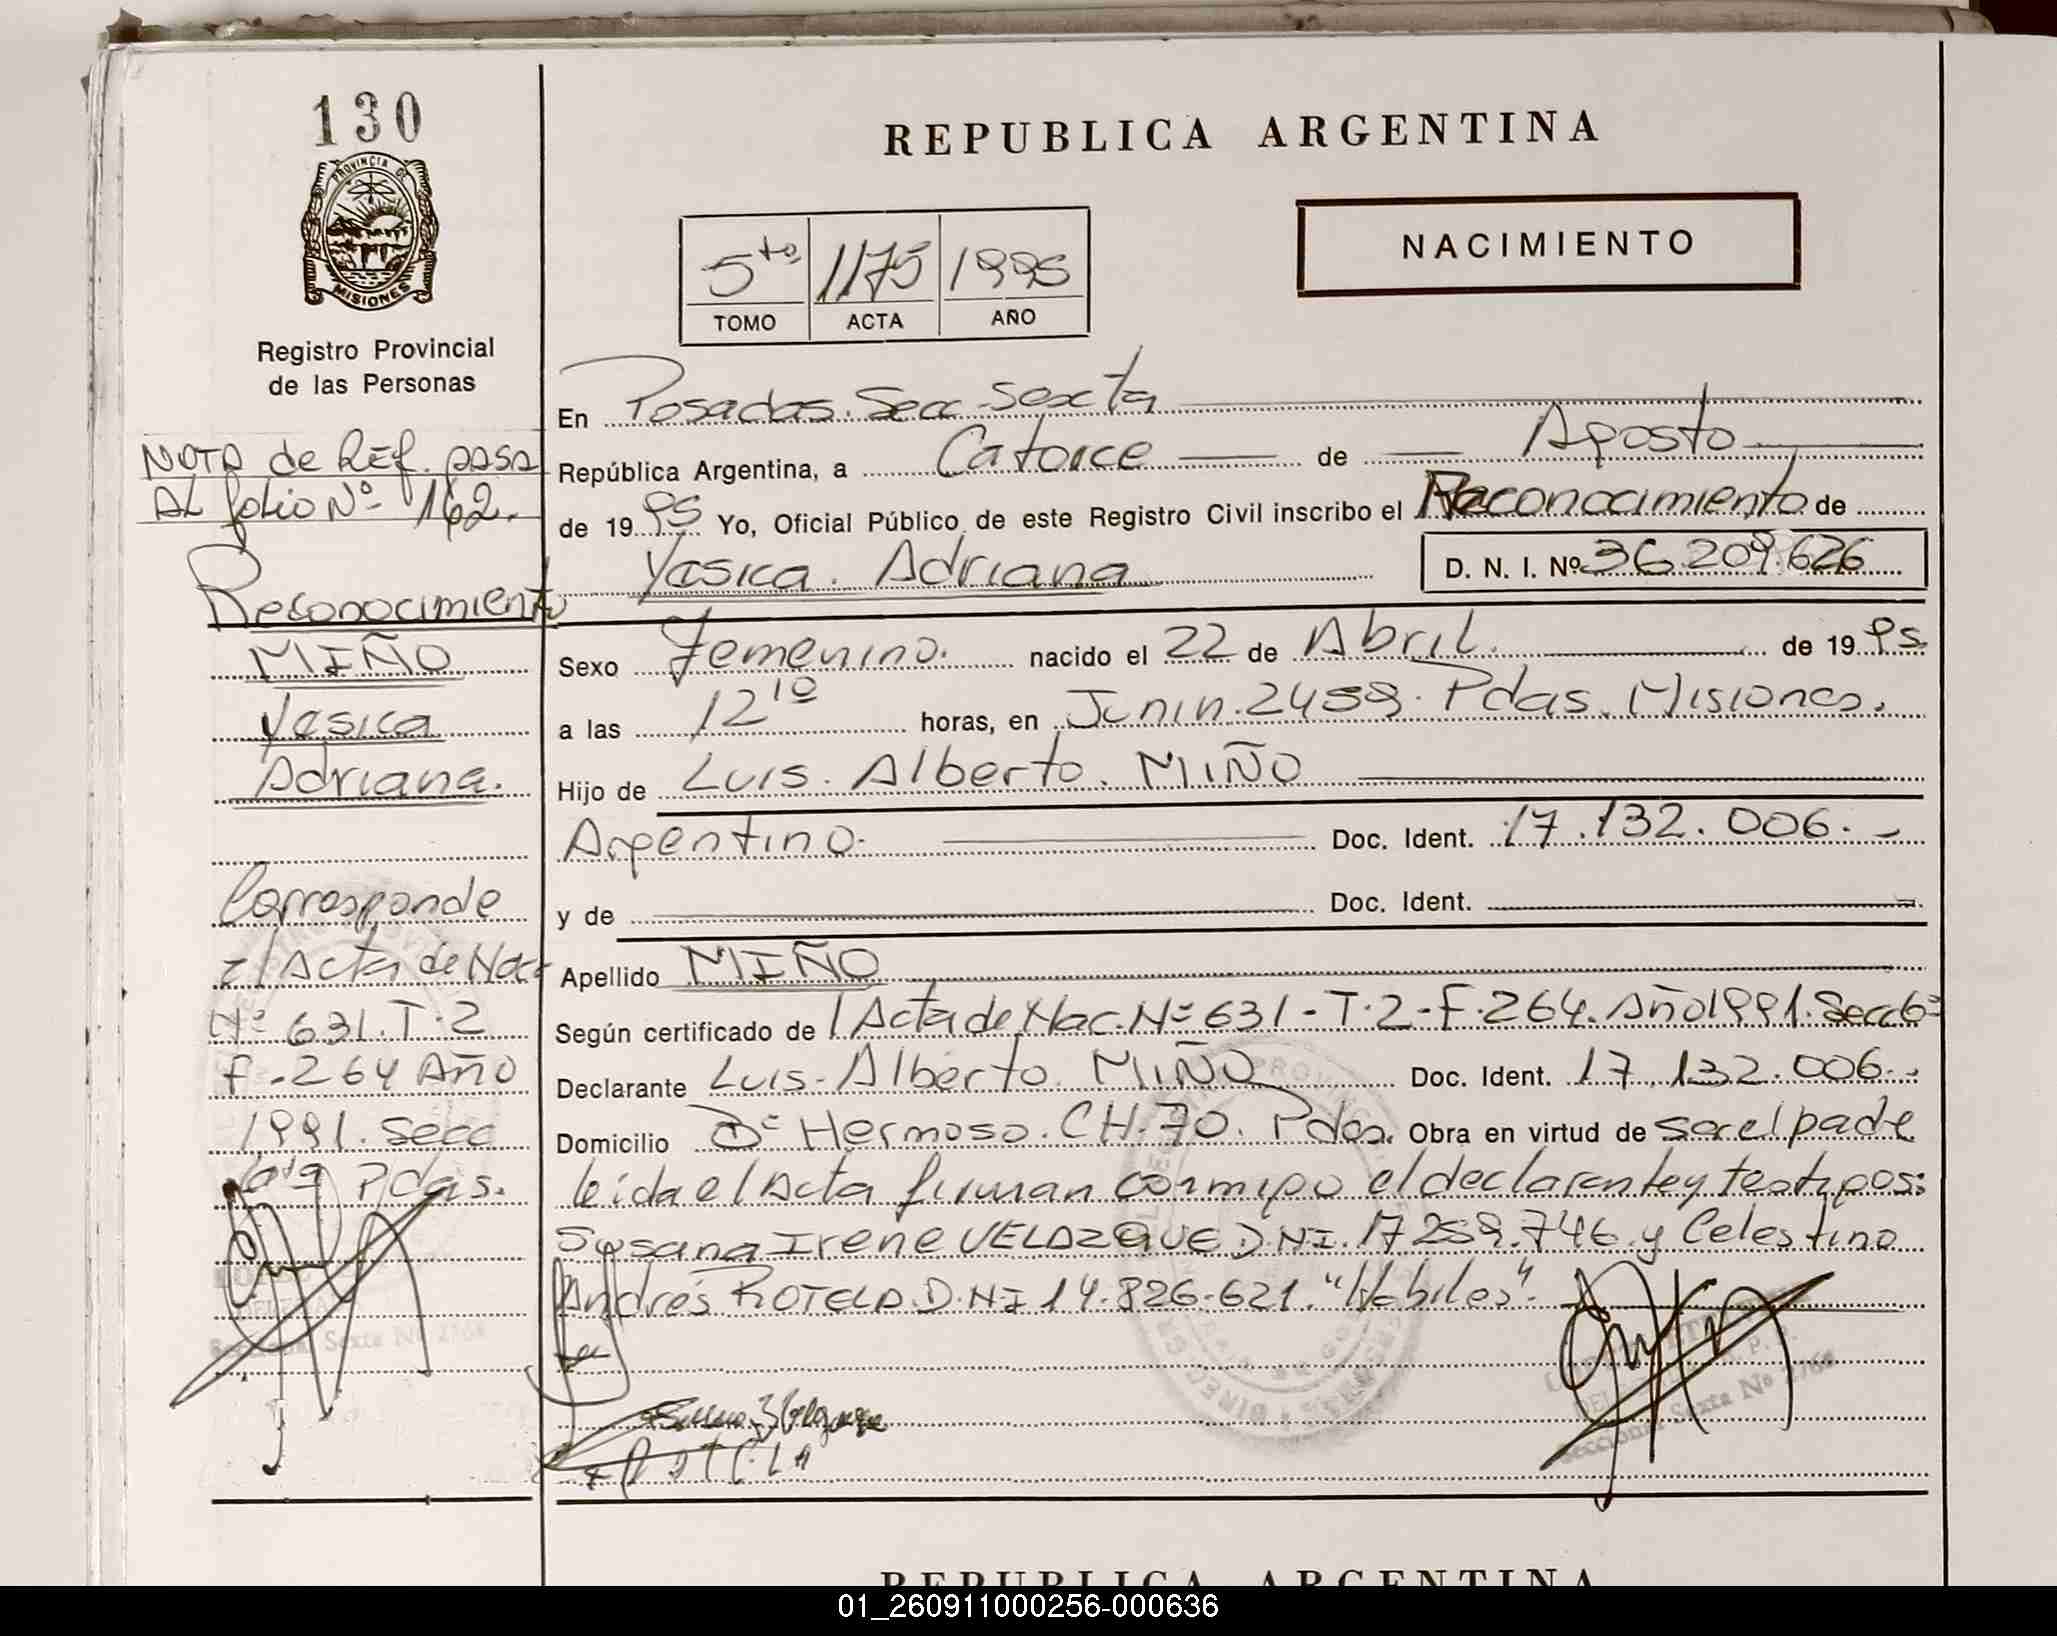 130
PROVINCIA DE
MISIONES
Registro Provincial
de las Personas
NOTA de REf. PASA
AL folio Nº 162.
Reconocimiento
MIÑO
Yesica
Adriana.
Corresponde
al Acta de Nac
Nº 631. T. 2
F. 264 Año
1991. Secc
6ta Pdas.
REPUBLICA ARGENTINA
NACIMIENTO
5to 1175 1995
TOMO ACTA AÑO
En Posadas. Secc. Sexta
República Argentina, a Catorce de Agosto
de 1995 Yo, Oficial Público de este Registro Civil inscribo el Reconocimiento de
Yesica. Adriana D. N. I. Nº 36.209.626
Sexo Femenino. nacido el 22 de Abril. de 19
a las 12 10 horas, en Junin. 2459. Pdas. Misiones.
Hijo de Luis. Alberto. MIÑO
Argentino. Doc. Ident. 17.132.006.
y de Doc. Ident.
Apellido MIÑO
Según certificado de Acta de Nac. Nº 631 - T. 2 - F. 264. Año 1991. Secc 6ª
Declarante Luis. Alberto. MIÑO Doc. Ident. 17.132.006.
Domicilio Bº Hermoso. CH. 70. Pdas. Obra en virtud de ser el padre
leida el Acta firman conmigo el declarante y testigos:
Susana Irene VELAZQUE D.NI. 17.259.746 y Celestino
Andrés ROTELA D.NI 14.826.621. "Habiles".
Seccional Sexta Nº 2768
ROTELA
Seccional Sexta Nº 2768
REPUBLICA ARGENTINA
01_260911000256-000636